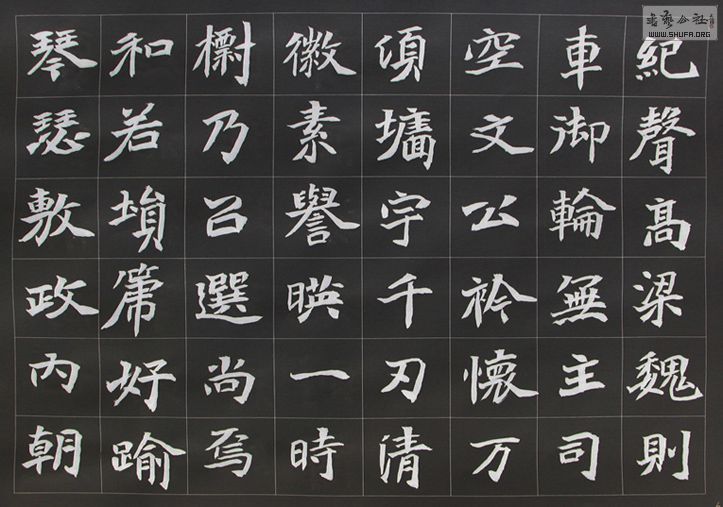 紀聲高梁魏則
車御輪無主司
空文公衿懷万
頃墻宇千刃清
徽素譽暎一時
乃召選尚焉
和若塤箎好踰
琴瑟敷政內朝
書藝公社
WWW.SHUFA.ORG